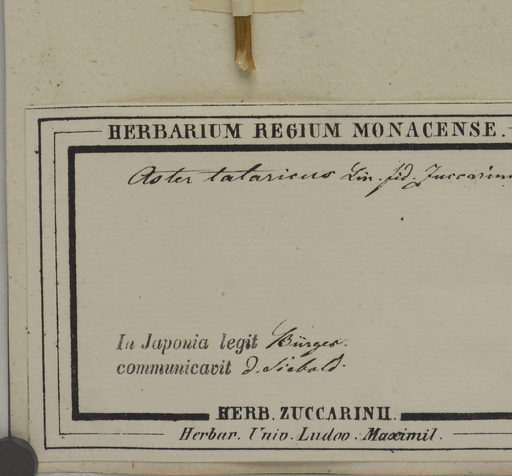 HERBARIUM REGIUM MONACENSE.
Aster tataricus Lin. fid. Zuccarini
In Japonia legit Bürger.
communicavit d. Siebold.
HERB. ZUCCARINII.
Herbar. Univ. Ludov. Maximil.